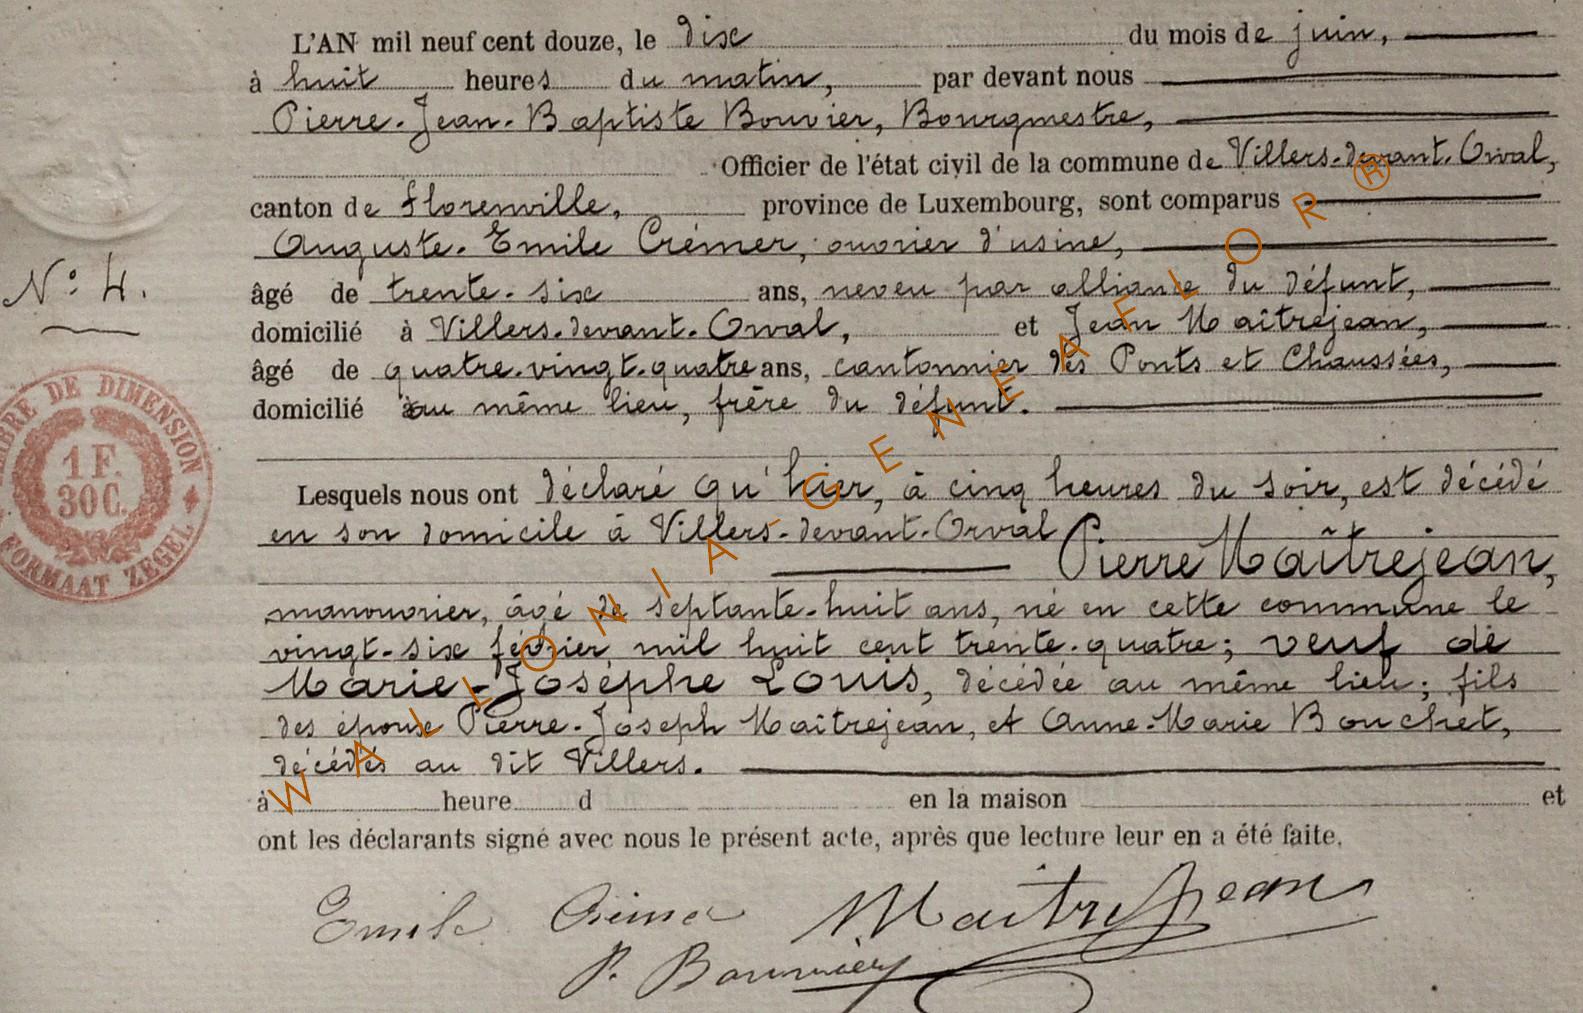 L'AN mil neuf cent douze, le dix du mois de juin,
à huit heures du matin, par devant nous
Pierre-Jean-Baptiste Bouvier, Bourgmestre,
Officier de l'état civil de la commune de Villers-devant-Orval,
canton de Florenville, province de Luxembourg, sont comparus
Auguste-Emile Crémer, ouvrier d'usine,
N° 4.
âgé de trente-six ans, neveu par alliance du défunt,
domicilié à Villers-devant-Orval, et Jean Maîtrejean,
âgé de quatre-vingt-quatre ans, cantonnier des Ponts et Chaussées,
domicilié au même lieu, frère du défunt.
TIMBRE DE DIMENSION
1 F.
30 C.
FORMAAT ZEGEL
Lesquels nous ont déclaré qu'hier, à cinq heures du soir, est décédé
en son domicile à Villers-devant-Orval
Pierre Maîtrejean,
manouvrier, âgé de septante-huit ans, né en cette commune le
vingt-six février mil huit cent trente-quatre; veuf de
Marie-Josèphe Louis, décédée au même lieu; fils
des époux Pierre-Joseph Maîtrejean, et Anne-Marie Bouchet,
décédés au dit Villers.
à heure d en la maison et
ont les déclarants signé avec nous le présent acte, après que lecture leur en a été faite.
Emile Crémer Maitrejean
P. Bouvier
WALLONIA-GENEAFLOR®